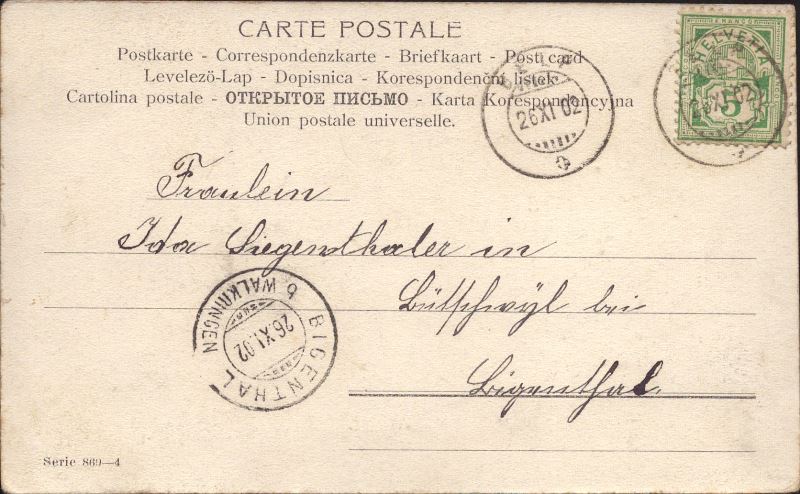 CARTE POSTALE
Postkarte - Correspondenzkarte - Briefkaart - Post card
Levelezö-Lap - Dopisnica - Korespondenční lístek
Cartolina postale - ОТКРЫТОЕ ПИСЬМО - Karta Korespondencyjna
Union postale universelle.
26 XI 02
FRANCO
HELVETIA
26 XI 02
5
Fräulein
Ida Siegenthaler in
Bütschwyl bei
Bigenthal.
BIGENTHAL
b. WALKRINGEN
26 XI. 02
Serie 869—4